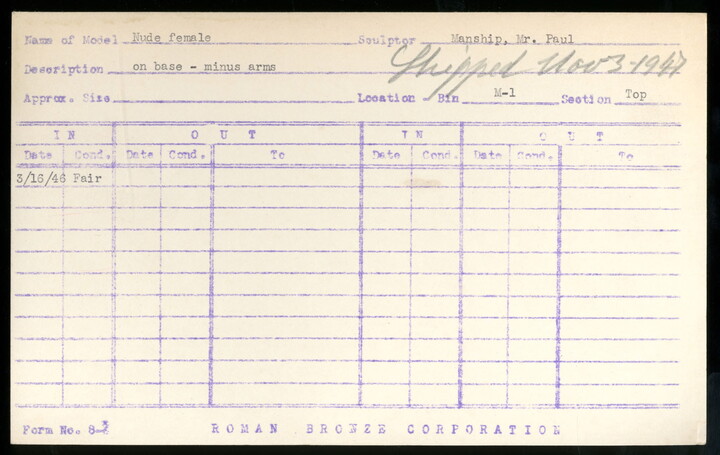 Name of Model Nude female Sculptor Manship, Mr. Paul
Description on base - minus arms Shipped Nov 3-1947
Approx. Size Location Bin M-1 Section Top
IN OUT IN OUT
Date Cond. Date Cond. To Date Cond. Date Cond. To
3/16/46 Fair
Form No. 8- ROMAN BRONZE CORPORATION